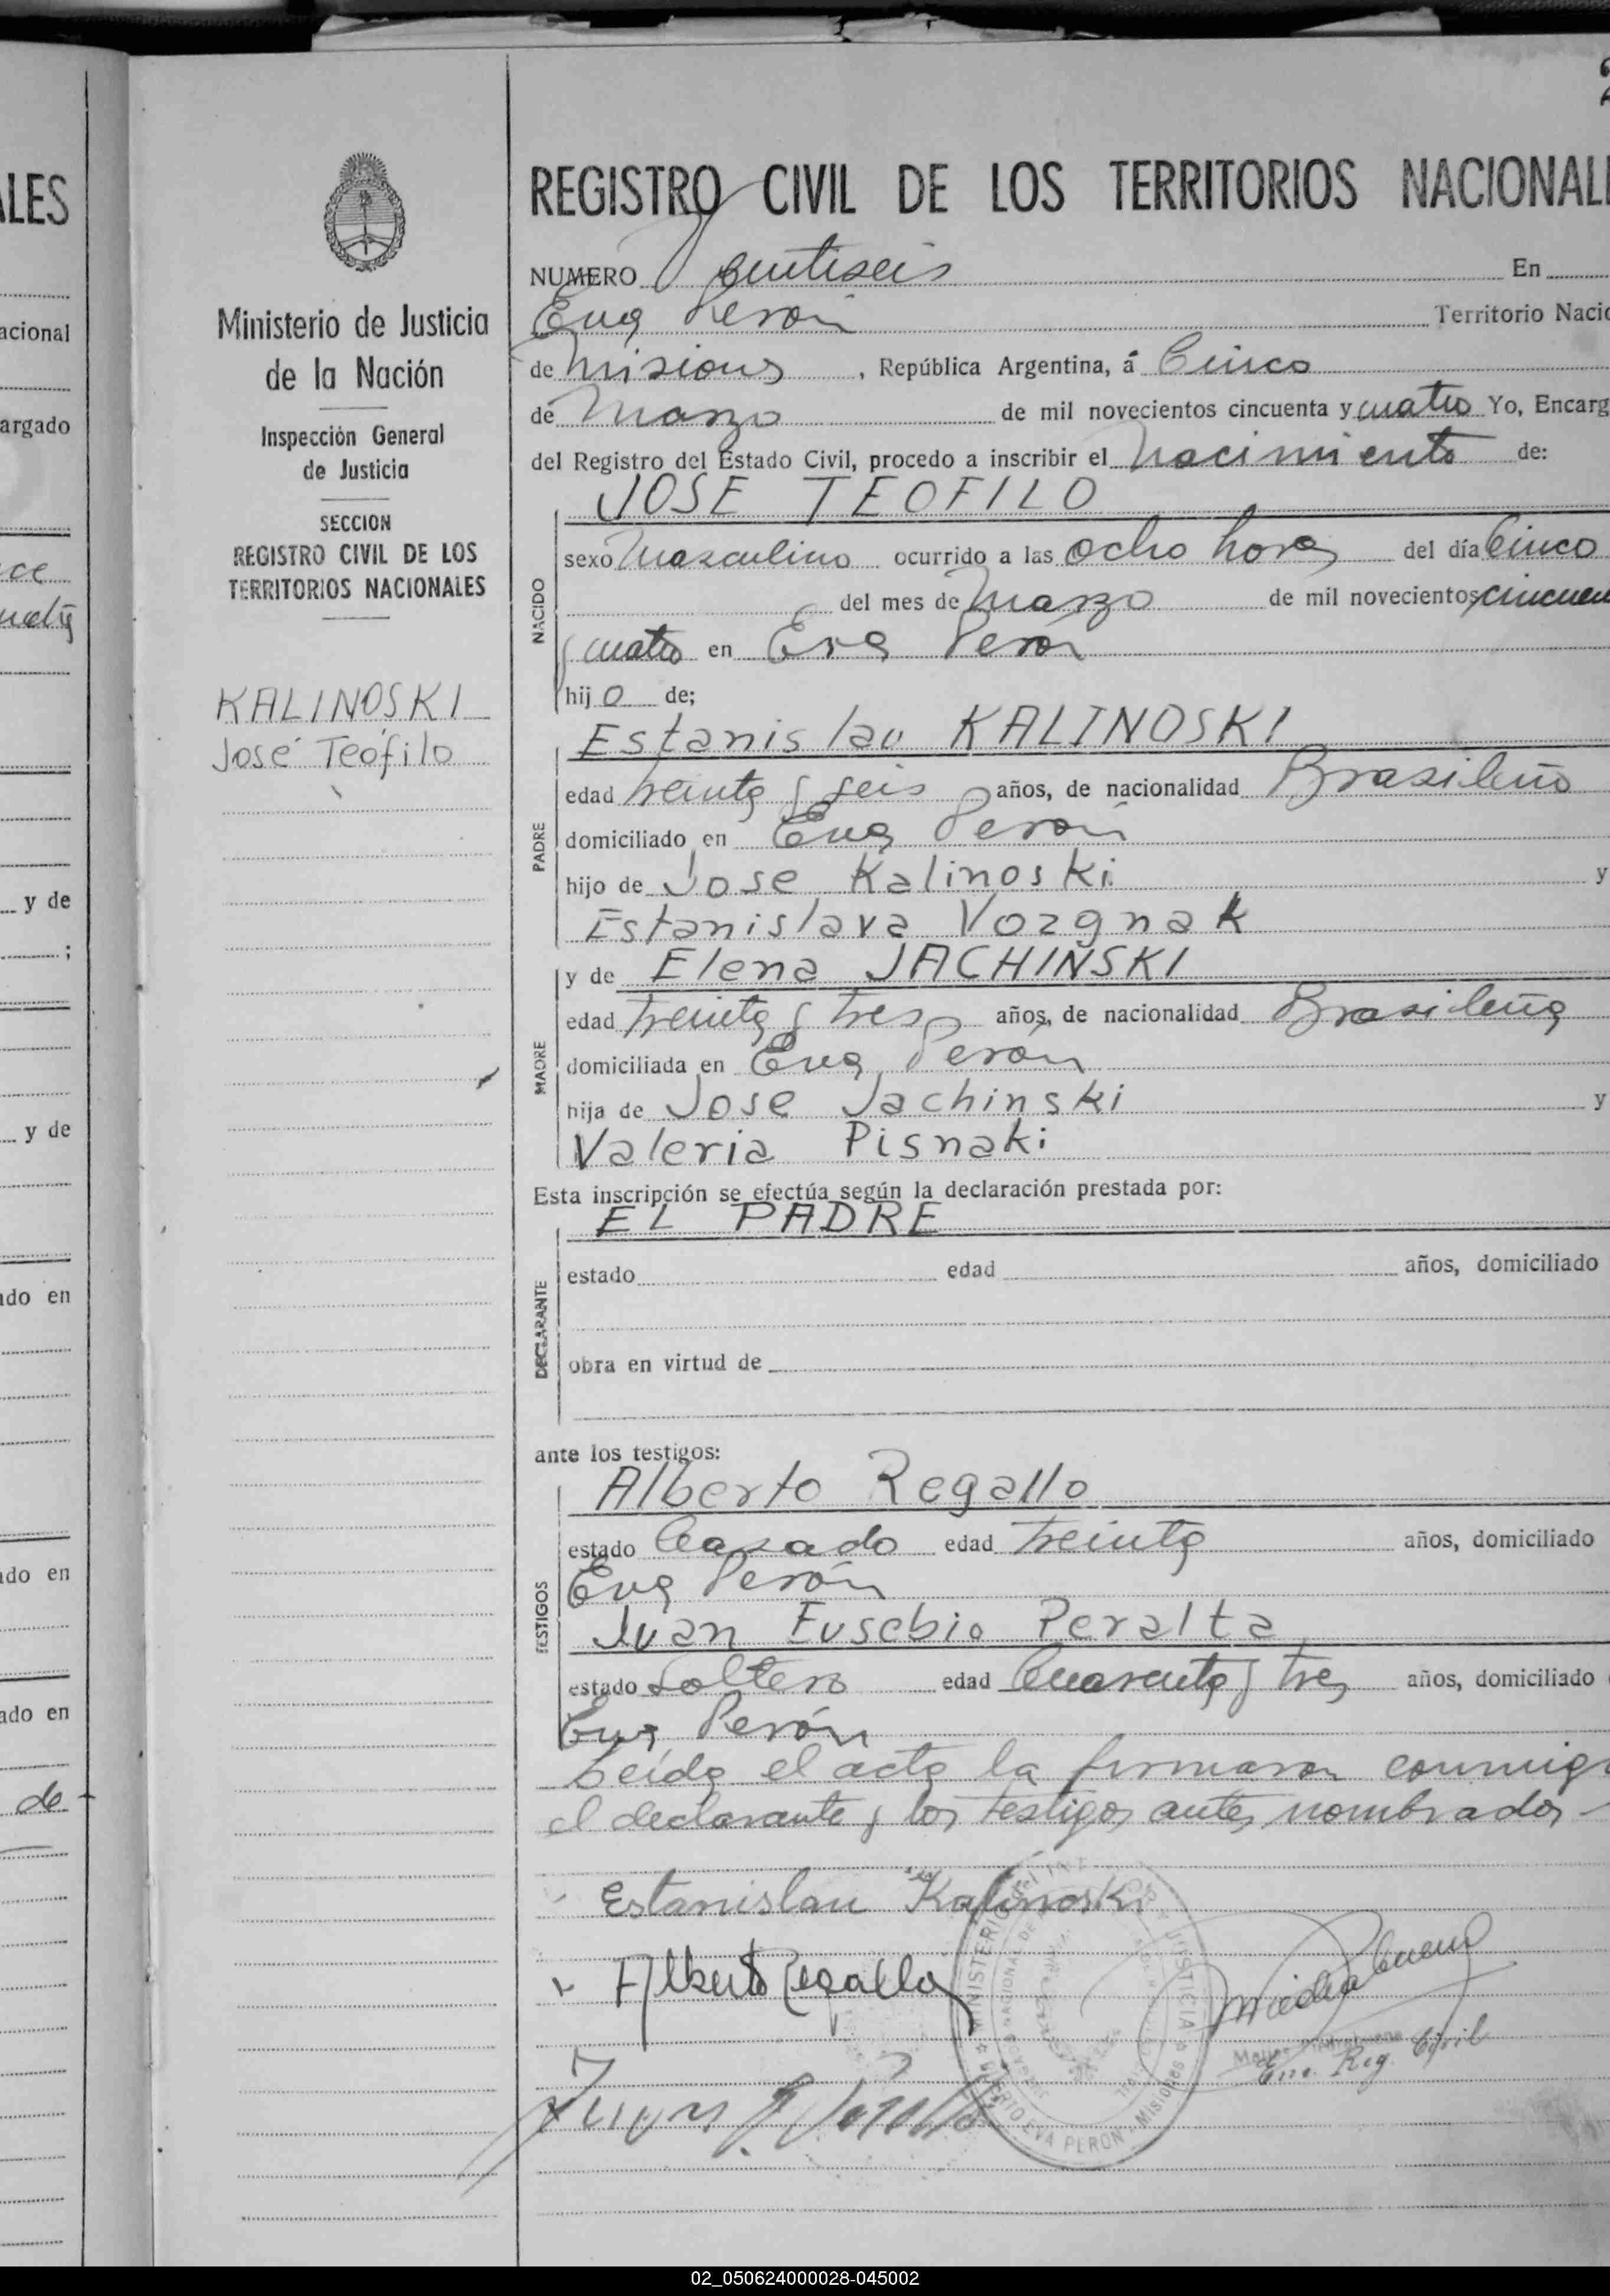 REGISTRO CIVIL DE LOS TERRITORIOS NACIONAL
NUMERO Ventiseis En
Eva Perón Territorio Nacio
de Misiones, República Argentina, á Cinco
de Marzo de mil novecientos cincuenta y cuatro Yo, Encarg
del Registro del Estado Civil, procedo a inscribir el Nacimiento de:
NACIDO
JOSE TEOFILO
sexo Masculino ocurrido a las ocho horas del día Cinco
del mes de Marzo de mil novecientos cincuen
y cuatro en Eva Perón
hijo de;
PADRE
Estanislau KALINOSKI
edad treinta y seis años, de nacionalidad Brasileño
domiciliado en Eva Perón
hijo de Jose Kalinoski y
Estanislava Vozgnak
MADRE
y de Elena JACHINSKI
edad treinta y tres años, de nacionalidad Brasileña
domiciliada en Eva Perón
hija de Jose Jachinski y
Valeria Pisnaki
Esta inscripción se efectúa según la declaración prestada por:
DECLARANTE
EL PADRE
estado edad años, domiciliado
obra en virtud de
ante los testigos:
TESTIGOS
Alberto Regallo
estado Casado edad treinta años, domiciliado
Eva Perón
Juan Eusebio Peralta
estado Soltero edad Cuarenta y tres años, domiciliado
Eva Perón
Leida el acta la firmaron conmigo
el declarante y los testigos antes nombrados -
Estanislau Kalinoski
Alberto Regallo
Enc. Reg. Civil
MINISTERIO DEL INTERIOR Y JUSTICIA
EVA PERON - MISIONES
Ministerio de Justicia
de la Nación
Inspección General
de Justicia
SECCION
REGISTRO CIVIL DE LOS
TERRITORIOS NACIONALES
KALINOSKI
José Teófilo
ALES
acional
argado
y de
;
y de
ado en
ado en
ado en
de
02_050624000028-045002